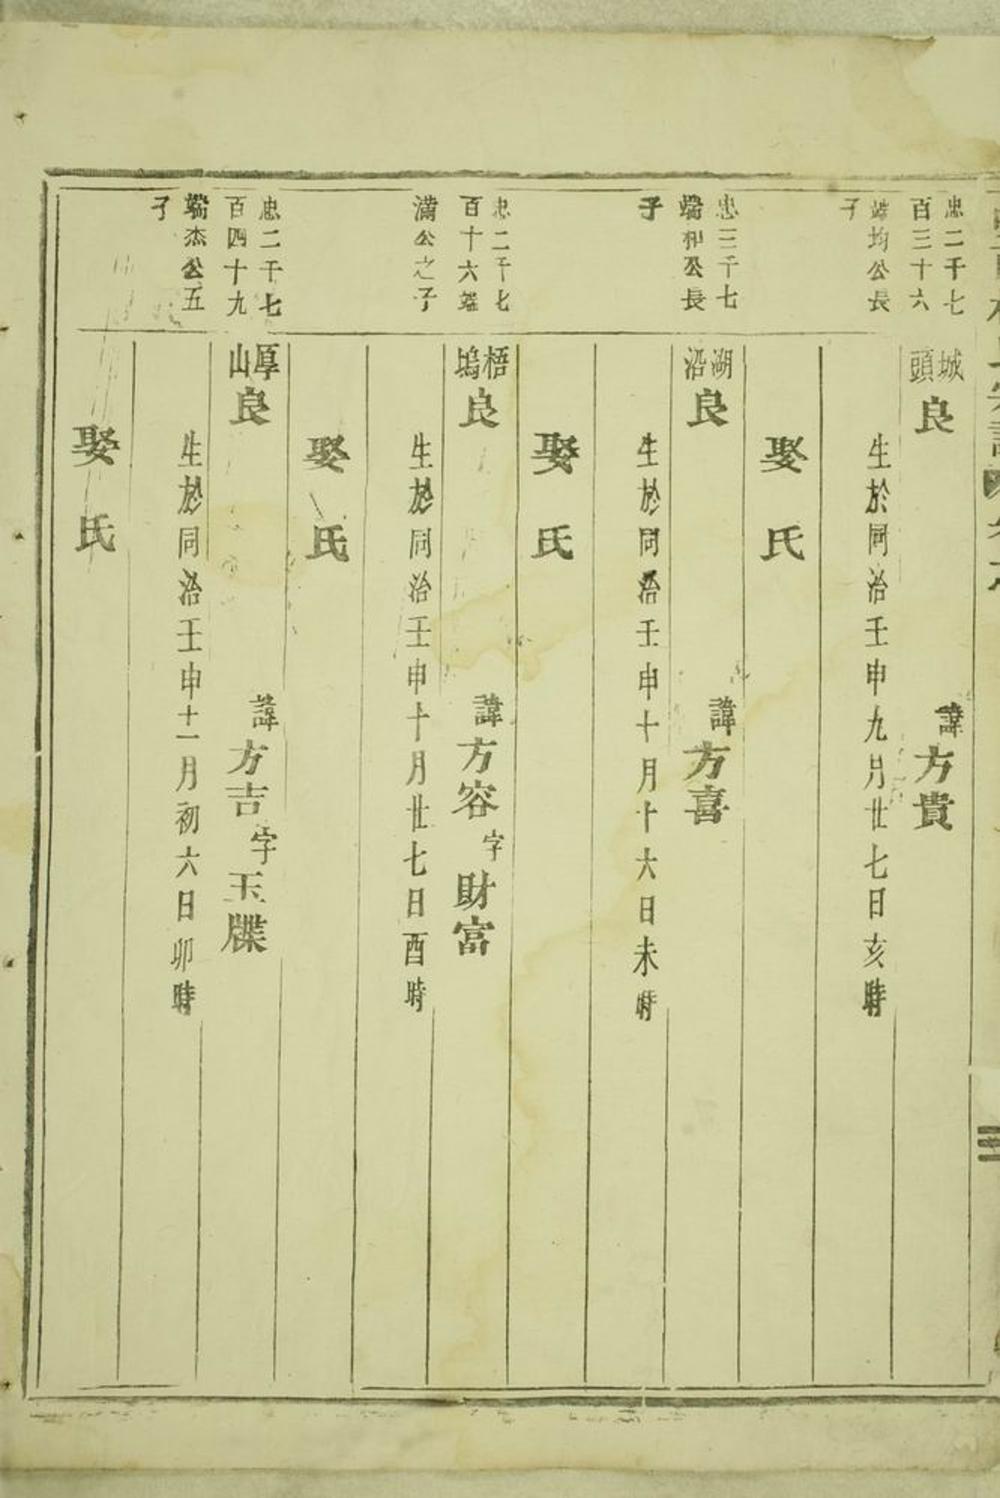 忠二千七
百三十六
端均公長
子
城頭
良
諱方貴
生於同治壬申九月廿七日亥時
娶氏
忠三千七
端和公長
子
湖沿
良
諱方喜
生於同治壬申十月十六日未時
娶氏
忠二千七
百十六端
滿公之子
梧塢
良
諱方容字財富
生於同治壬申十月廿七日酉時
娶氏
忠二千七
百四十九
端杰公五
子
厚山
良
諱方吉字玉牒
生於同治壬申十一月初六日卯時
娶氏